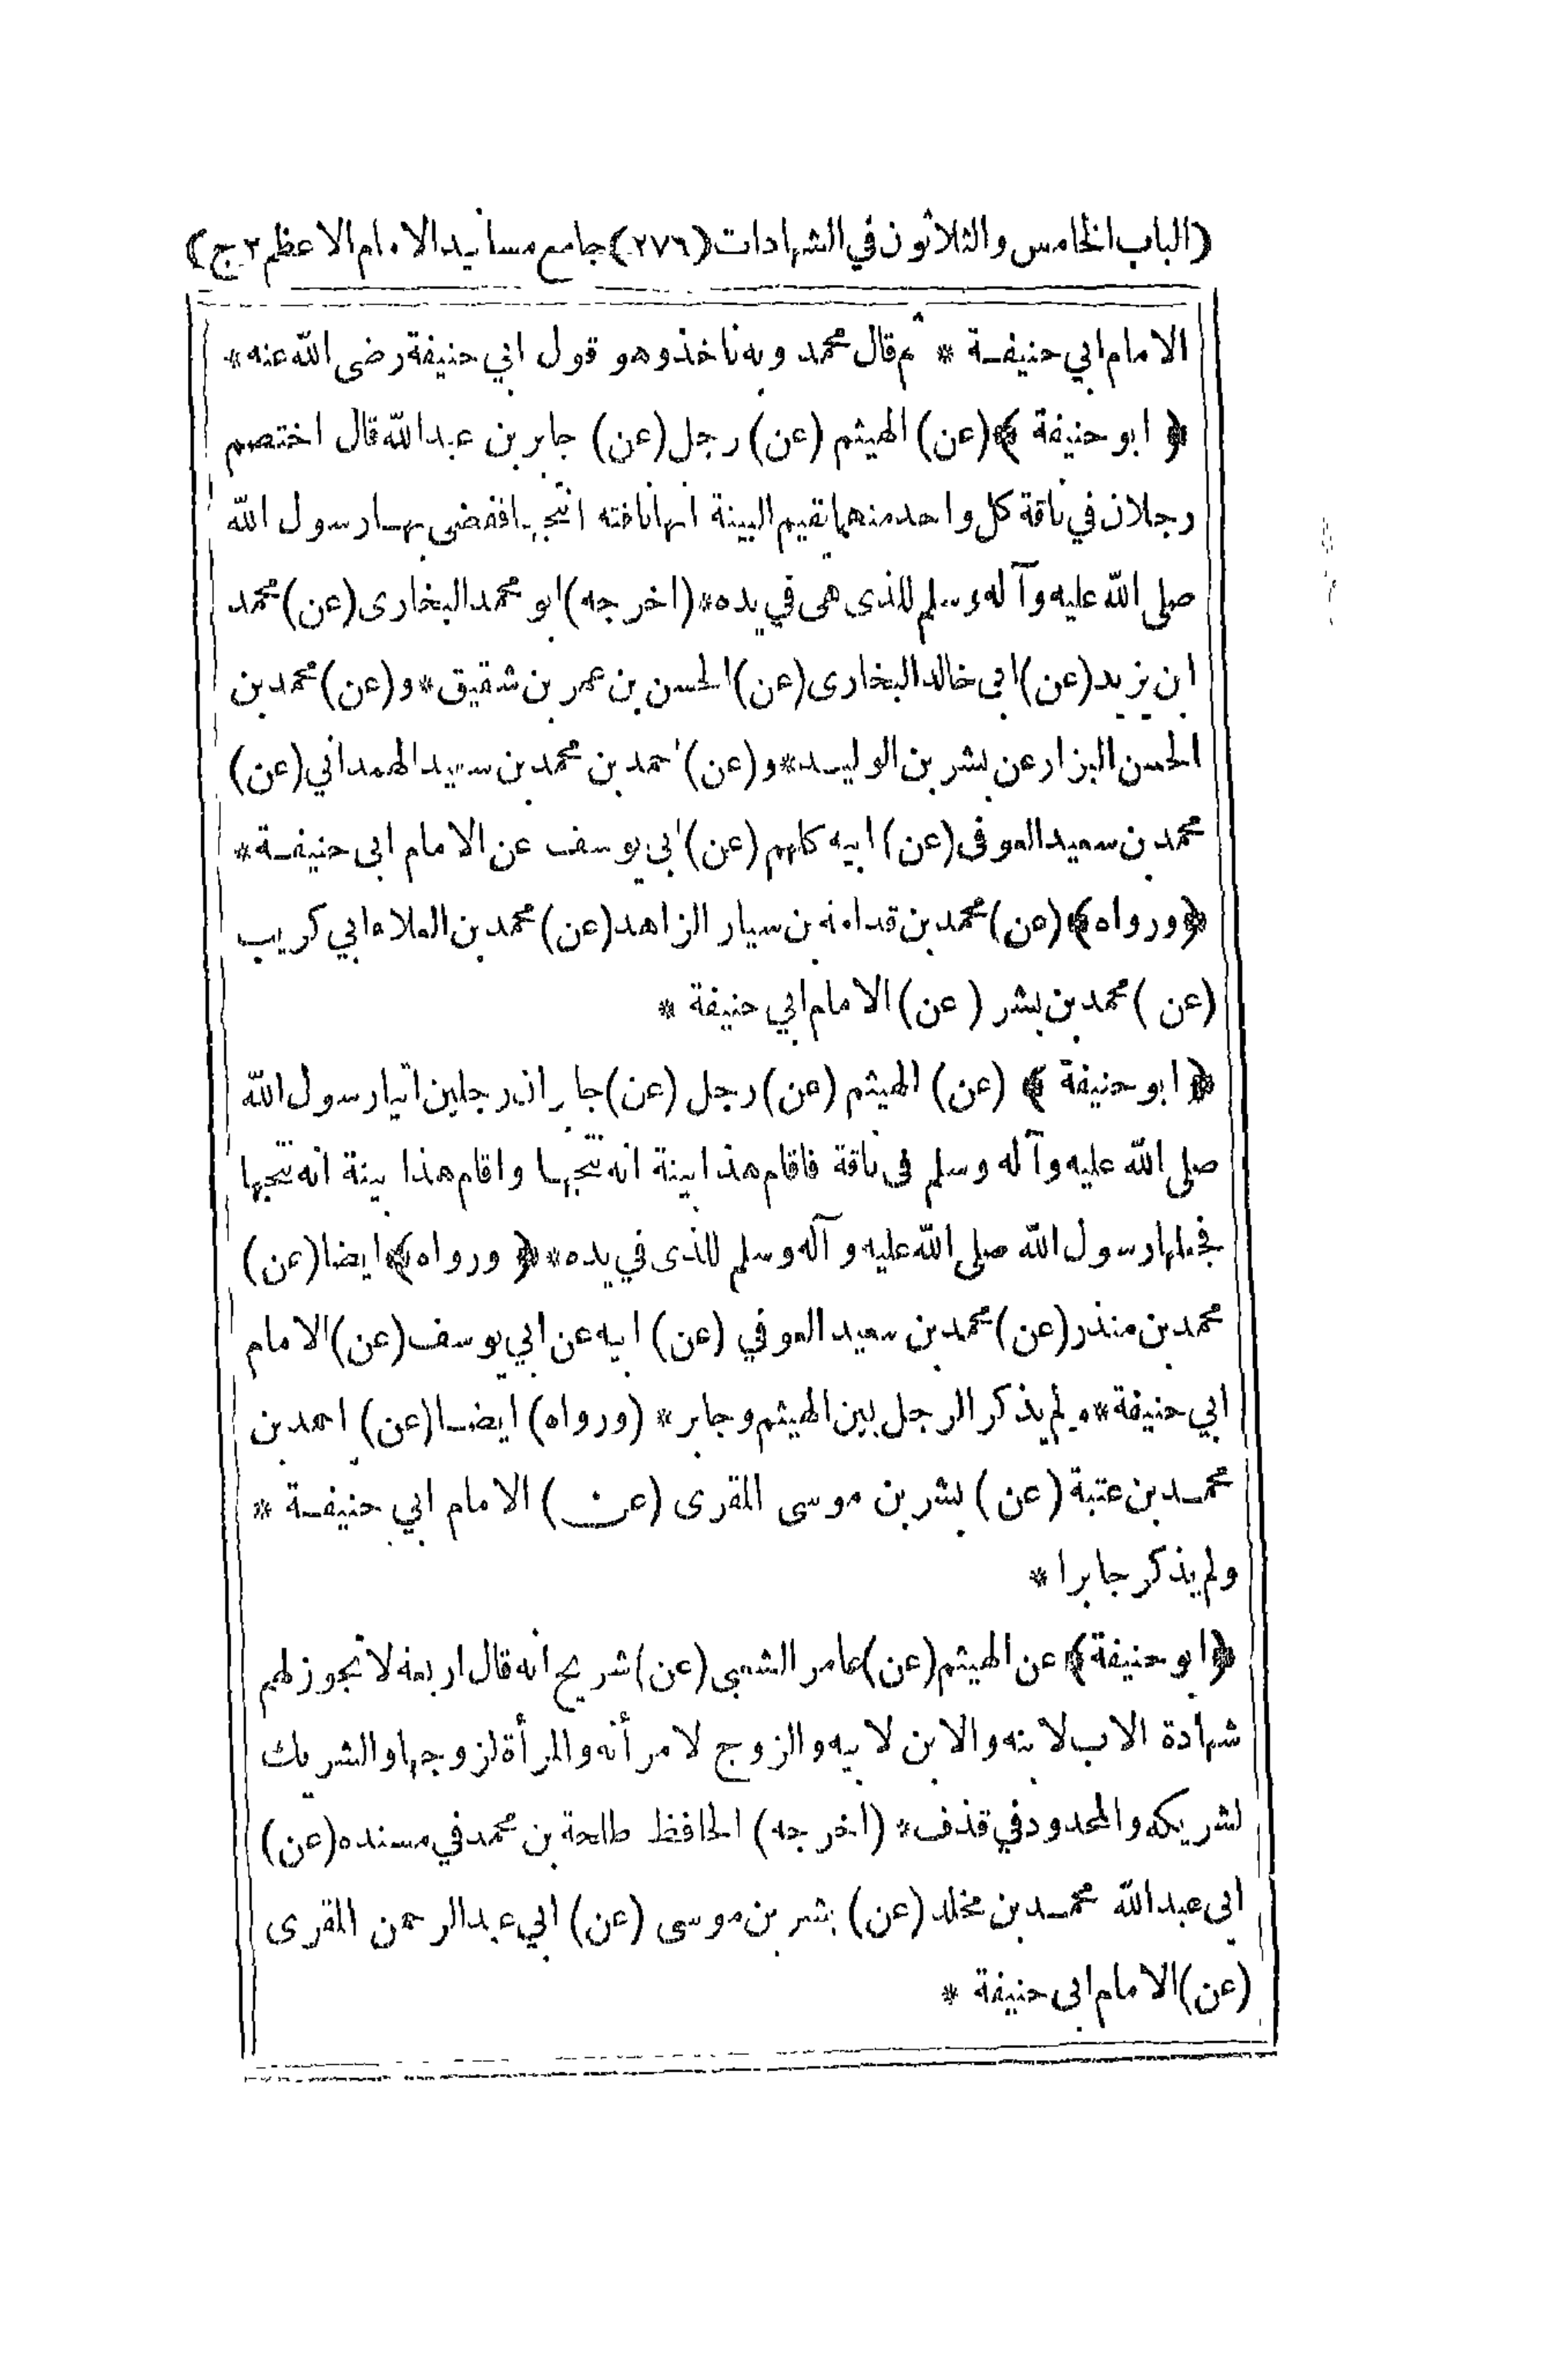 (الباب الخامس والثلاثون في الشهادات (٢٧٦) جامع مسانيد الامام الاعظم ٢ ج)
الامام ابي حنيفة * ثم قال محمد وبه ناخذ وهو قول ابي حنيفة رضى الله عنه *
﴿ ابو حنيفة ﴾ (عن) الهيثم (عن) رجل (عن) جابر بن عبد الله قال اختصم
رجلان في ناقة كل واحد منهما يقيم البينة انها ناقته انتجها فقضى بها رسول الله
صلى الله عليه وآله وسلم للذى هى في يده * (اخرجه) ابو محمد البخارى (عن) محمد
ابن يزيد (عن) ابى خالد البخارى (عن) الحسن بن عمر بن شقيق * و (عن) محمد بن
الحسن البزار عن بشر بن الوليد * و (عن) احمد بن محمد بن سعيد الهمداني (عن)
محمد بن سعيد العوفى (عن) ابيه كلهم (عن) ابي يوسف عن الامام ابى حنيفة *
﴿ورواه﴾ (عن) محمد بن قدامة بن سيار الزاهد (عن) محمد بن العلاء ابي كريب
(عن) محمد بن بشر (عن) الامام ابي حنيفة *
﴿ ابو حنيفة ﴾ (عن) الهيثم (عن) رجل (عن) جابر ان رجلين اتيا رسول الله
صلى الله عليه وآله وسلم فى ناقة فاقام هذا بينة انه نتجها واقام هذا بينة انه نتجها
فجعلها رسول الله صلى الله عليه وآله وسلم للذى في يده * ﴿ ورواه ﴾ ايضا (عن)
محمد بن منذر (عن) محمد بن سعيد العوفي (عن) ابيه عن ابي يوسف (عن) الامام
ابي حنيفة * ولم يذكر الرجل بين الهيثم وجابر * (ورواه) ايضا (عن) احمد بن
محمد بن عتبة (عن) بشر بن موسى المقرى (عن) الامام ابي حنيفة *
ولم يذكر جابرا *
﴿ابو حنيفة﴾ عن الهيثم (عن) عامر الشعبى (عن) شريح انه قال اربعة لا تجوز لهم
شهادة الاب لابنه والابن لابيه والزوج لامرأته والمرأة لزوجها والشريك
لشريكه والمحدود في قذف * (اخرجه) الحافظ طلحة بن محمد في مسنده (عن)
ابى عبد الله محمد بن مخلد (عن) بشر بن موسى (عن) ابي عبد الرحمن المقرى
(عن) الامام ابى حنيفة *